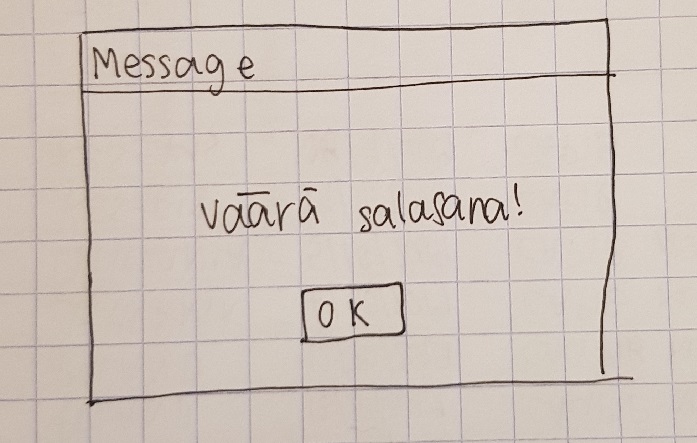 Message
väärä salasana!
OK